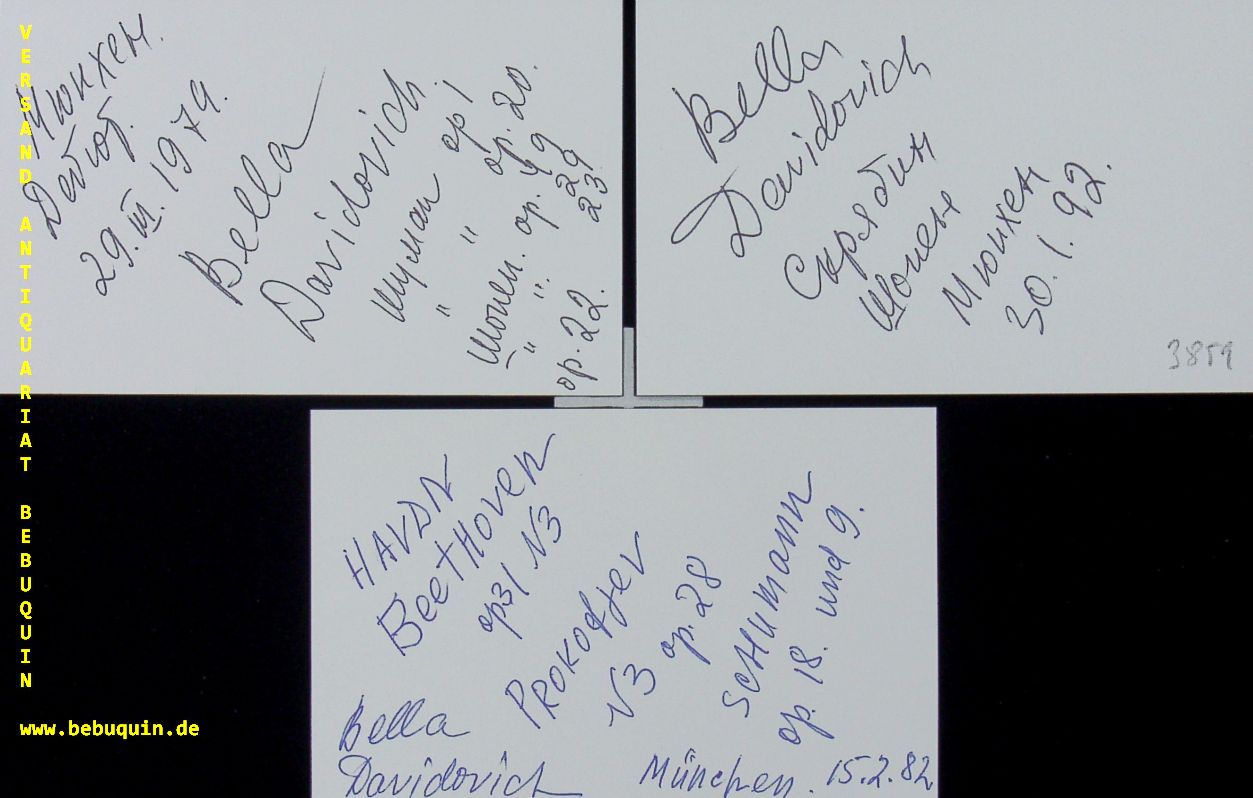 VERSAND ANTIQUARIAT BEBUQUIN
www.bebuquin.de
Мюнхен.
Дебют.
29.III.1979.
Bella
Davidovich
Шуман op 1
" " op. 20.
Шопен. op. 49
" " 29
23.
op. 22.
Bella
Davidovich
Скрябин
Шопен
Мюнхен
30.1.92.
3859
HAYDN
BEETHOVEN
op31 N3
PROKOFIEV
N3 op. 28
SCHUMANN
op. 18. und 9.
Bella
Davidovich
München. 15.2.82